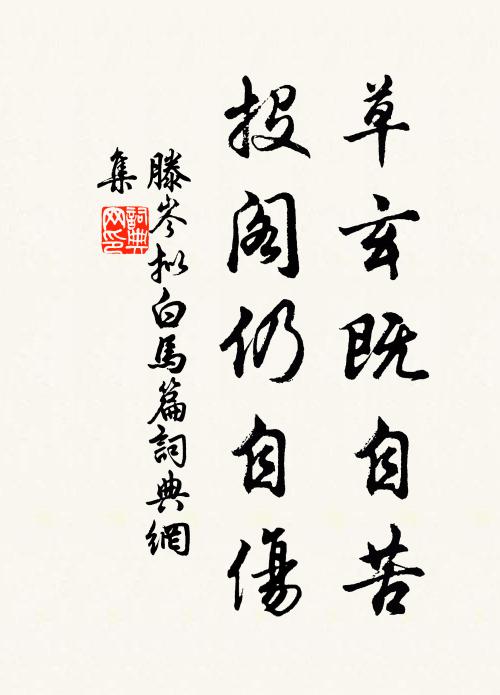 草玄既自苦
投阁仍自傷
滕岑拟白馬篇詞典網
集
詞典
网印